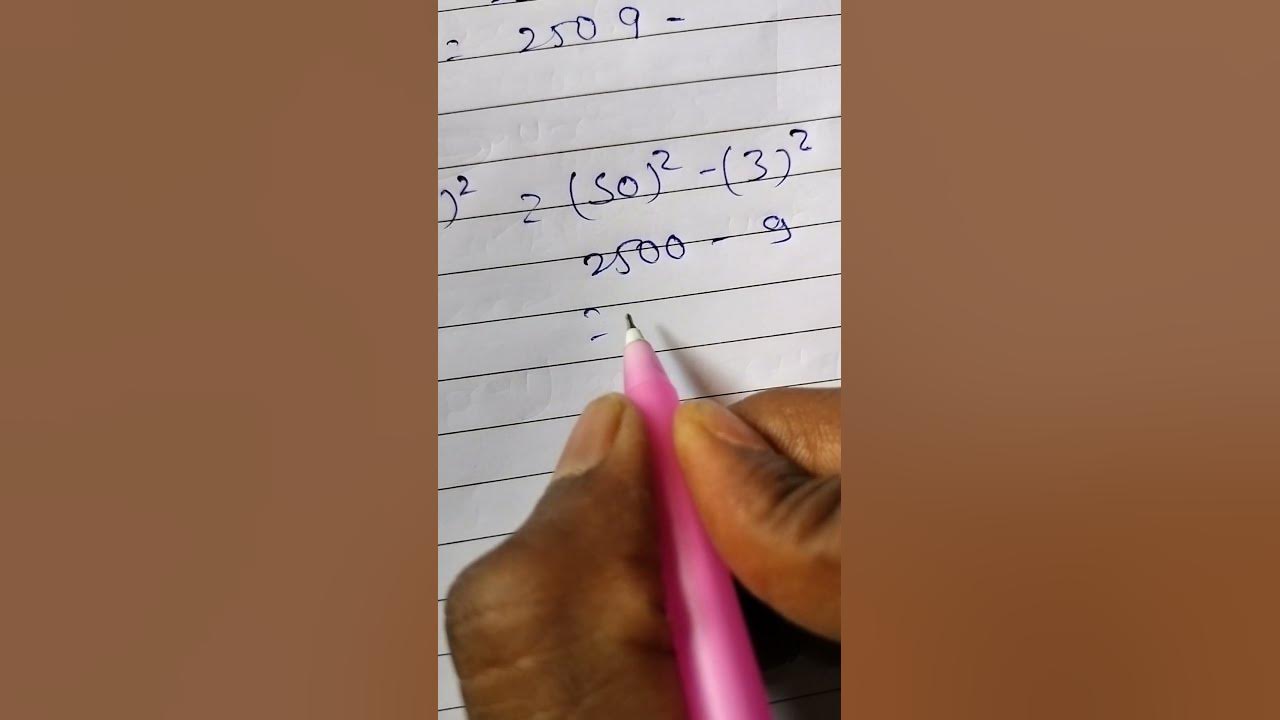 = 2509 -
)² = (50)² - (3)²
2500 - 9
=